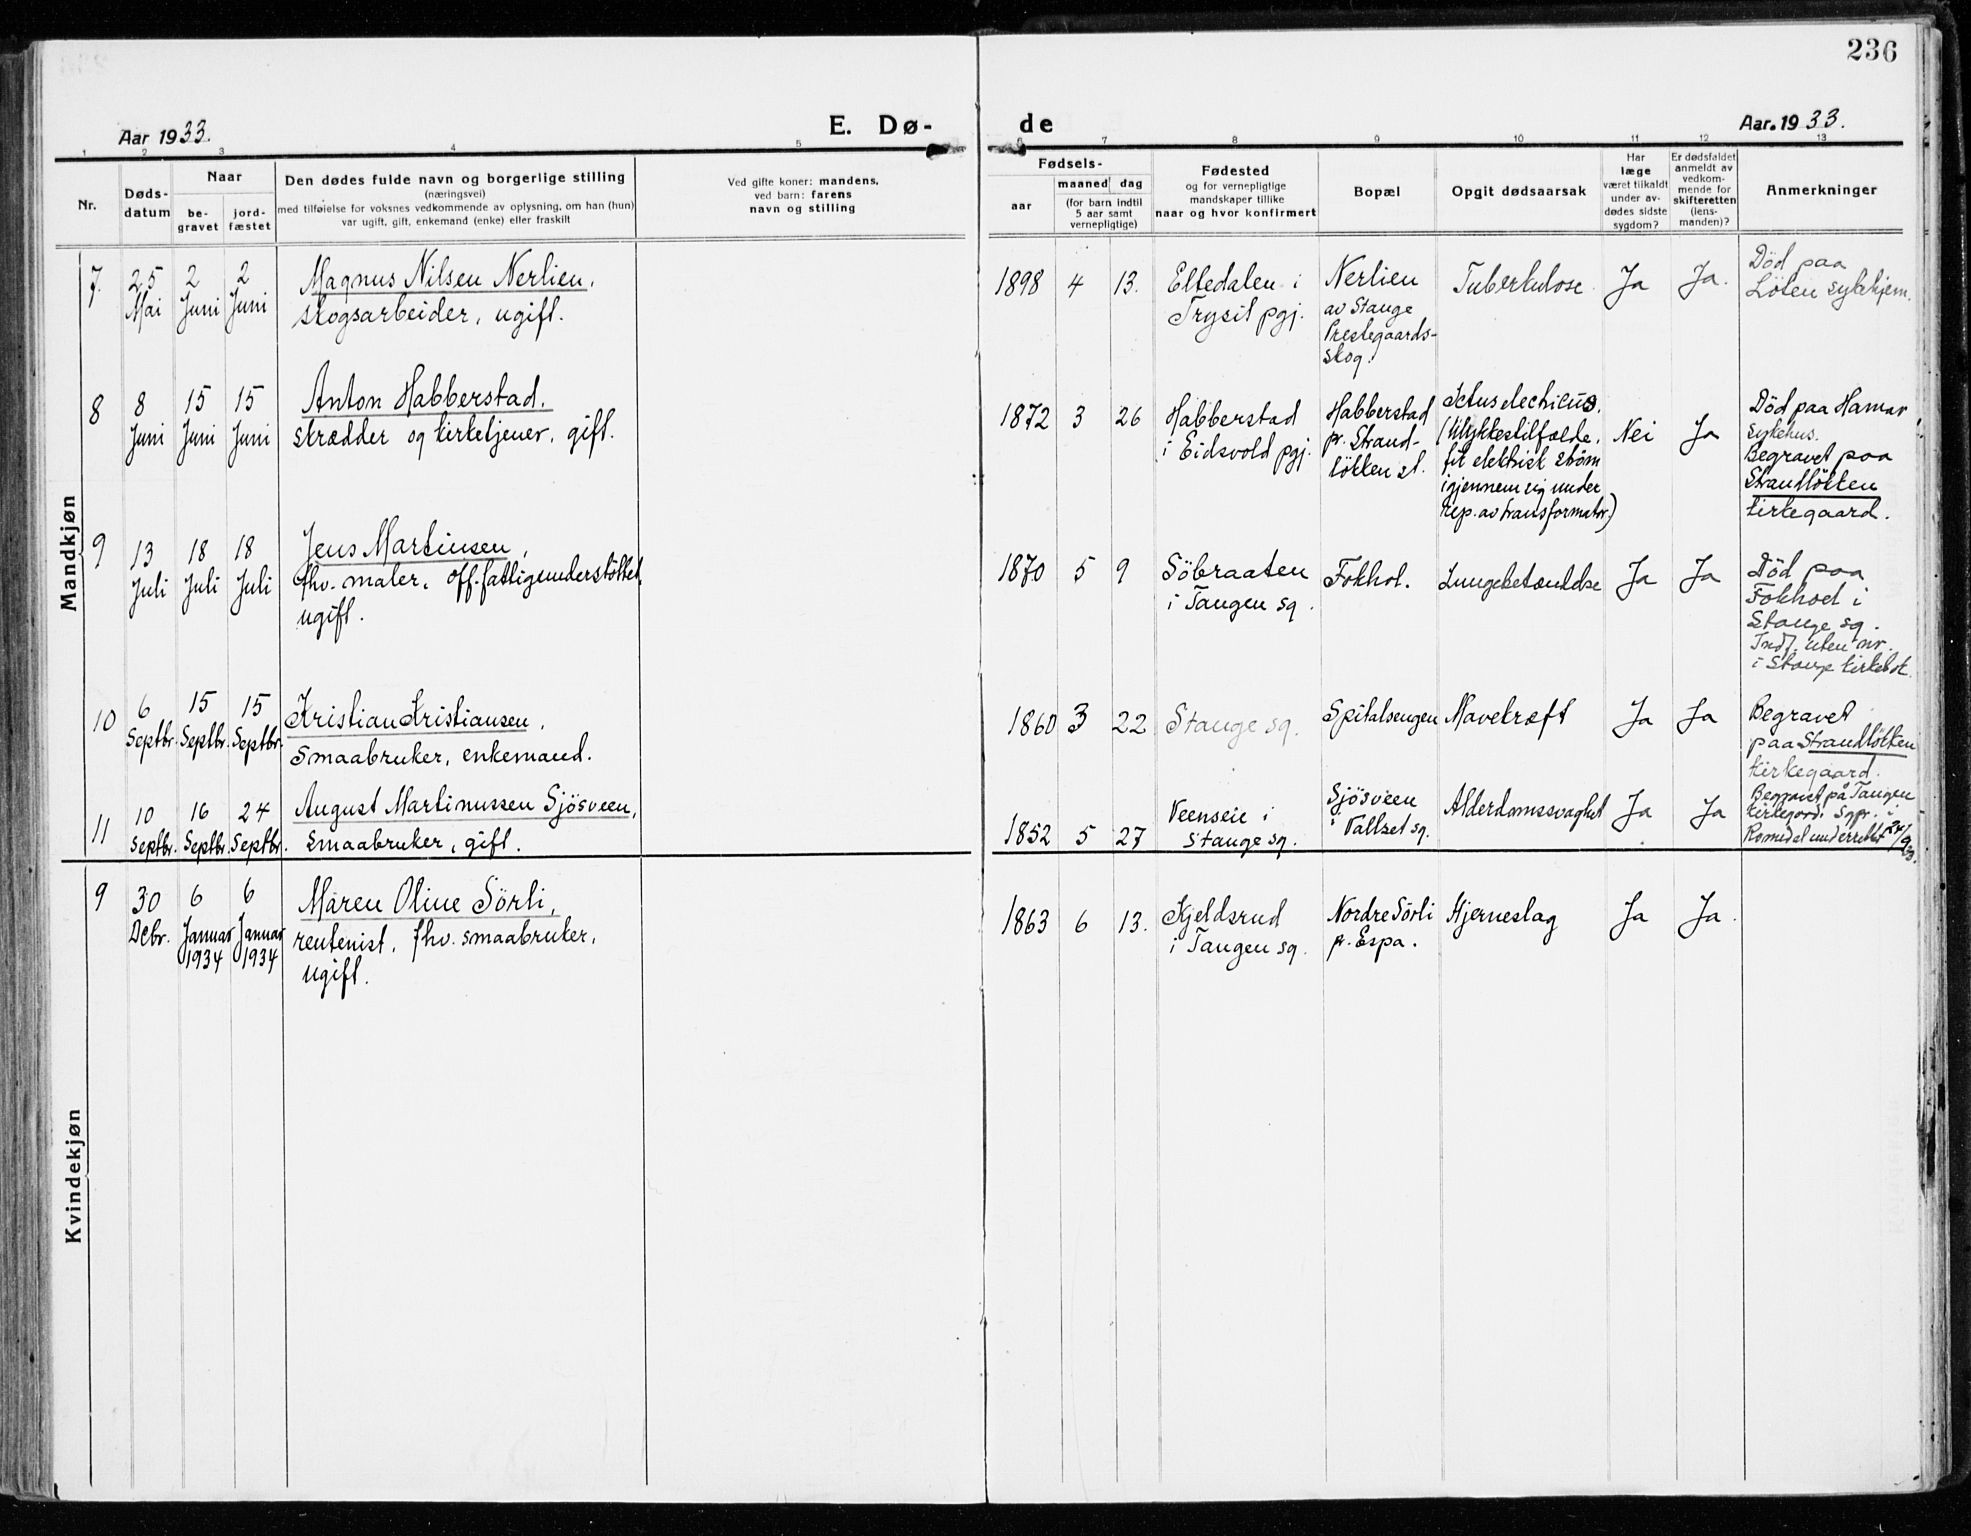 236
Aar 1933.
E. Dø-
de
Aar. 1933.
1 2 3 4 5 6 7 8 9 10 11 12 13
Nr.
Døds-
datum
Naar
be-
gravet
jord-
fæstet
Den dødes fulde navn og borgerlige stilling
(næringsvei)
med tilføielse for voksnes vedkommende av oplysning, om han (hun)
var ugift, gift, enkemand (enke) eller fraskilt
Ved gifte koner: mandens,
ved barn: farens
navn og stilling
Fødsels-
aar
maaned dag
(for barn indtil
5 aar samt
vernepligtige)
Fødested
og for vernepligtige
mandskaper tillike
naar og hvor konfirmert
Bopæl
Opgit dødsaarsak
Har
læge
været tilkaldt
under av-
dødes sidste
sygdom?
Er dødsfaldet
anmeldt av
vedkom-
mende for
skifteretten
(lens-
manden)?
Anmerkninger
Mandkjøn
7.
25
Mai
2
Juni
2
Juni
Magnus Nilsen Nerlien,
skogsarbeider, ugift.
1898 4 13.
Eltedalen i
Trysil pgj.
Nerlien
av Stange
Prestegaards-
skog.
Tuberkulose
Ja
Ja.
Död paa
Löten sykehjem.
8
8
Juni
15
Juni
15
Juni
Anton Habberstad.
skrædder og kirketjener, gift.
1872 3 26
Habberstad
i Eidsvold pgj.
Habberstad
pr. Strand-
lökken st.
Ictus electricus.
(Ulykkestilfælde.
fik elektrisk ström
igjennem sig under
rep. av transformator)
Nei
Ja
Död paa Hamar
sykehus.
Begravet paa
Strandlökken
kirkegaard.
9
13
Juli
18
Juli
18
Juli
Jens Martinsen,
fhv. maler, off. fattigunderstöttet,
ugift.
1870 5 9
Söbraaten
i Tangen sg.
Fokhol.
Lungebetændelse
Ja
Ja
Död paa
Fokhol i
Stange sg.
Indf. uten nr.
i Stange kirkebok.
10
6
Septbr.
15
Septbr.
15
Septbr.
Kristian Kristiansen,
smaabruker, enkemand.
1860 3 22
Stange sg.
Spitalsengen
Mavekræft
Ja
Ja
Begravet
paa Strandlökken
kirkegaard.
11
10
Septbr.
16
Septbr.
24
Septbr.
August Martinussen Sjösveen,
smaabruker, gift.
1852 5 27
Veenseie i
Stange sg.
Sjösveen
i Vallset sg.
Alderdomssvaghet
Ja
Ja
Begravet på Tangen
kirkegord. Sgpr. i
Romedal underrettet 24/9 33.
Kvindekjøn
9
30
Dcbr.
6
Januar
1934
6
Januar
1934
Maren Oline Sörli,
rentenist, fhv. smaabruker,
ugift.
1863 6 13.
Kjeldsrud
i Tangen sg.
Nordre Sörli
pr. Espa.
Hjerneslag
Ja
Ja.